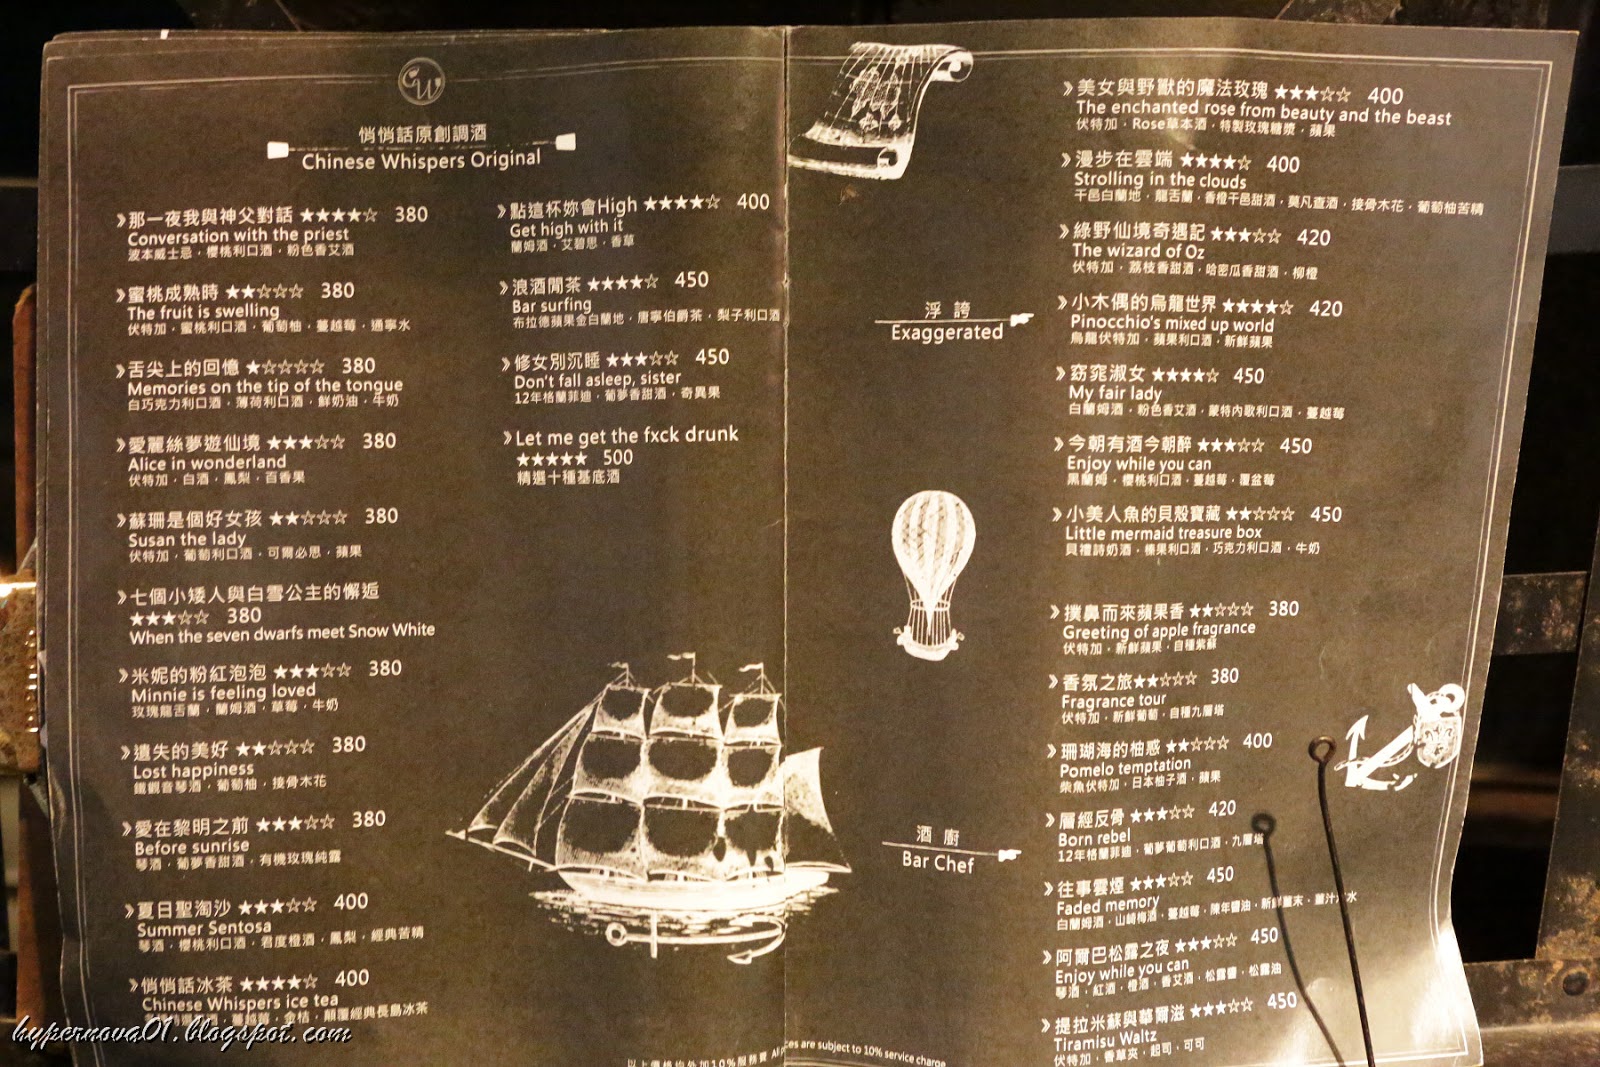 悄悄話原創調酒
Chinese Whispers Original
》那一夜我與神父對話 ★★★★☆ 380
Conversation with the priest
波本威士忌．櫻桃利口酒．粉色香艾酒
》蜜桃成熟時 ★★☆☆☆ 380
The fruit is swelling
伏特加．蜜桃利口酒．葡萄柚．蔓越莓．通寧水
》舌尖上的回憶 ★☆☆☆☆ 380
Memories on the tip of the tongue
白巧克力利口酒．薄荷利口酒．鮮奶油．牛奶
》愛麗絲夢遊仙境 ★★★☆☆ 380
Alice in wonderland
伏特加．白酒．鳳梨．百香果
》蘇珊是個好女孩 ★★☆☆☆ 380
Susan the lady
伏特加．葡萄利口酒．可爾必思．蘋果
》七個小矮人與白雪公主的懈逅
★★★☆☆ 380
When the seven dwarfs meet Snow White
》米妮的粉紅泡泡 ★★★☆☆ 380
Minnie is feeling loved
玫瑰龍舌蘭．蘭姆酒．草莓．牛奶
》遺失的美好 ★★☆☆☆ 380
Lost happiness
鐵觀音琴酒．葡萄柚．接骨木花
》愛在黎明之前 ★★★☆☆ 380
Before sunrise
琴酒．葡夢香甜酒．有機玫瑰純露
》夏日聖淘沙 ★★★☆☆ 400
Summer Sentosa
琴酒．櫻桃利口酒．君度橙酒．鳳梨．經典苦精
》悄悄話冰茶 ★★★★☆ 400
Chinese Whispers ice tea
蔓越莓．金桔．顛覆經典長島冰茶
》點這杯妳會High ★★★★☆ 400
Get high with it
蘭姆酒．艾碧思．香草
》浪酒閒茶 ★★★★☆ 450
Bar surfing
布拉德蘋果金白蘭地．唐寧伯爵茶．梨子利口酒
》修女別沉睡 ★★★☆☆ 450
Don't fall asleep, sister
12年格蘭菲迪．葡夢香甜酒．奇異果
》Let me get the fxck drunk
★★★★★ 500
精選十種基底酒
浮誇
Exaggerated
》美女與野獸的魔法玫瑰 ★★★☆☆ 400
The enchanted rose from beauty and the beast
伏特加．Rose草本酒．特製玫瑰糖漿．蘋果
》漫步在雲端 ★★★★☆ 400
Strolling in the clouds
干邑白蘭地．龍舌蘭．香橙干邑甜酒．莫凡查酒．接骨木花．葡萄柚苦精
》綠野仙境奇遇記 ★★★☆☆ 420
The wizard of Oz
伏特加．荔枝香甜酒．哈密瓜香甜酒．柳橙
》小木偶的烏龍世界 ★★★★☆ 420
Pinocchio's mixed up world
烏龍伏特加．蘋果利口酒．新鮮蘋果
》窈窕淑女 ★★★★☆ 450
My fair lady
白蘭姆酒．粉色香艾酒．蒙特內歌利口酒．蔓越莓
》今朝有酒今朝醉 ★★★☆☆ 450
Enjoy while you can
黑蘭姆．櫻桃利口酒．蔓越莓．覆盆莓
》小美人魚的貝殼寶藏 ★★☆☆☆ 450
Little mermaid treasure box
貝禮詩奶酒．榛果利口酒．巧克力利口酒．牛奶
酒廚
Bar Chef
》撲鼻而來蘋果香 ★★☆☆☆ 380
Greeting of apple fragrance
伏特加．新鮮蘋果．自種紫蘇
》香氛之旅 ★★☆☆☆ 380
Fragrance tour
伏特加．新鮮葡萄．自種九層塔
》珊瑚海的柚惑 ★★☆☆☆ 400
Pomelo temptation
柴魚伏特加．日本柚子酒．蘋果
》層經反骨 ★★★☆☆ 420
Born rebel
12年格蘭菲迪．葡夢葡萄利口酒．九層塔
》往事雲煙 ★★★☆☆ 450
Faded memory
白蘭姆酒．山崎梅酒．蔓越莓．陳年醬油．新鮮薑末．薑汁汽水
》阿爾巴松露之夜 ★★★☆☆ 450
Enjoy while you can
琴酒．紅酒．橙酒．香艾酒．松露醬．松露油
》提拉米蘇與華爾滋 ★★★☆☆ 450
Tiramisu Waltz
伏特加．香草莢．起司．可可
以上價格均外加10%服務費 All prices are subject to 10% service charge
hypernova01.blogspot.com